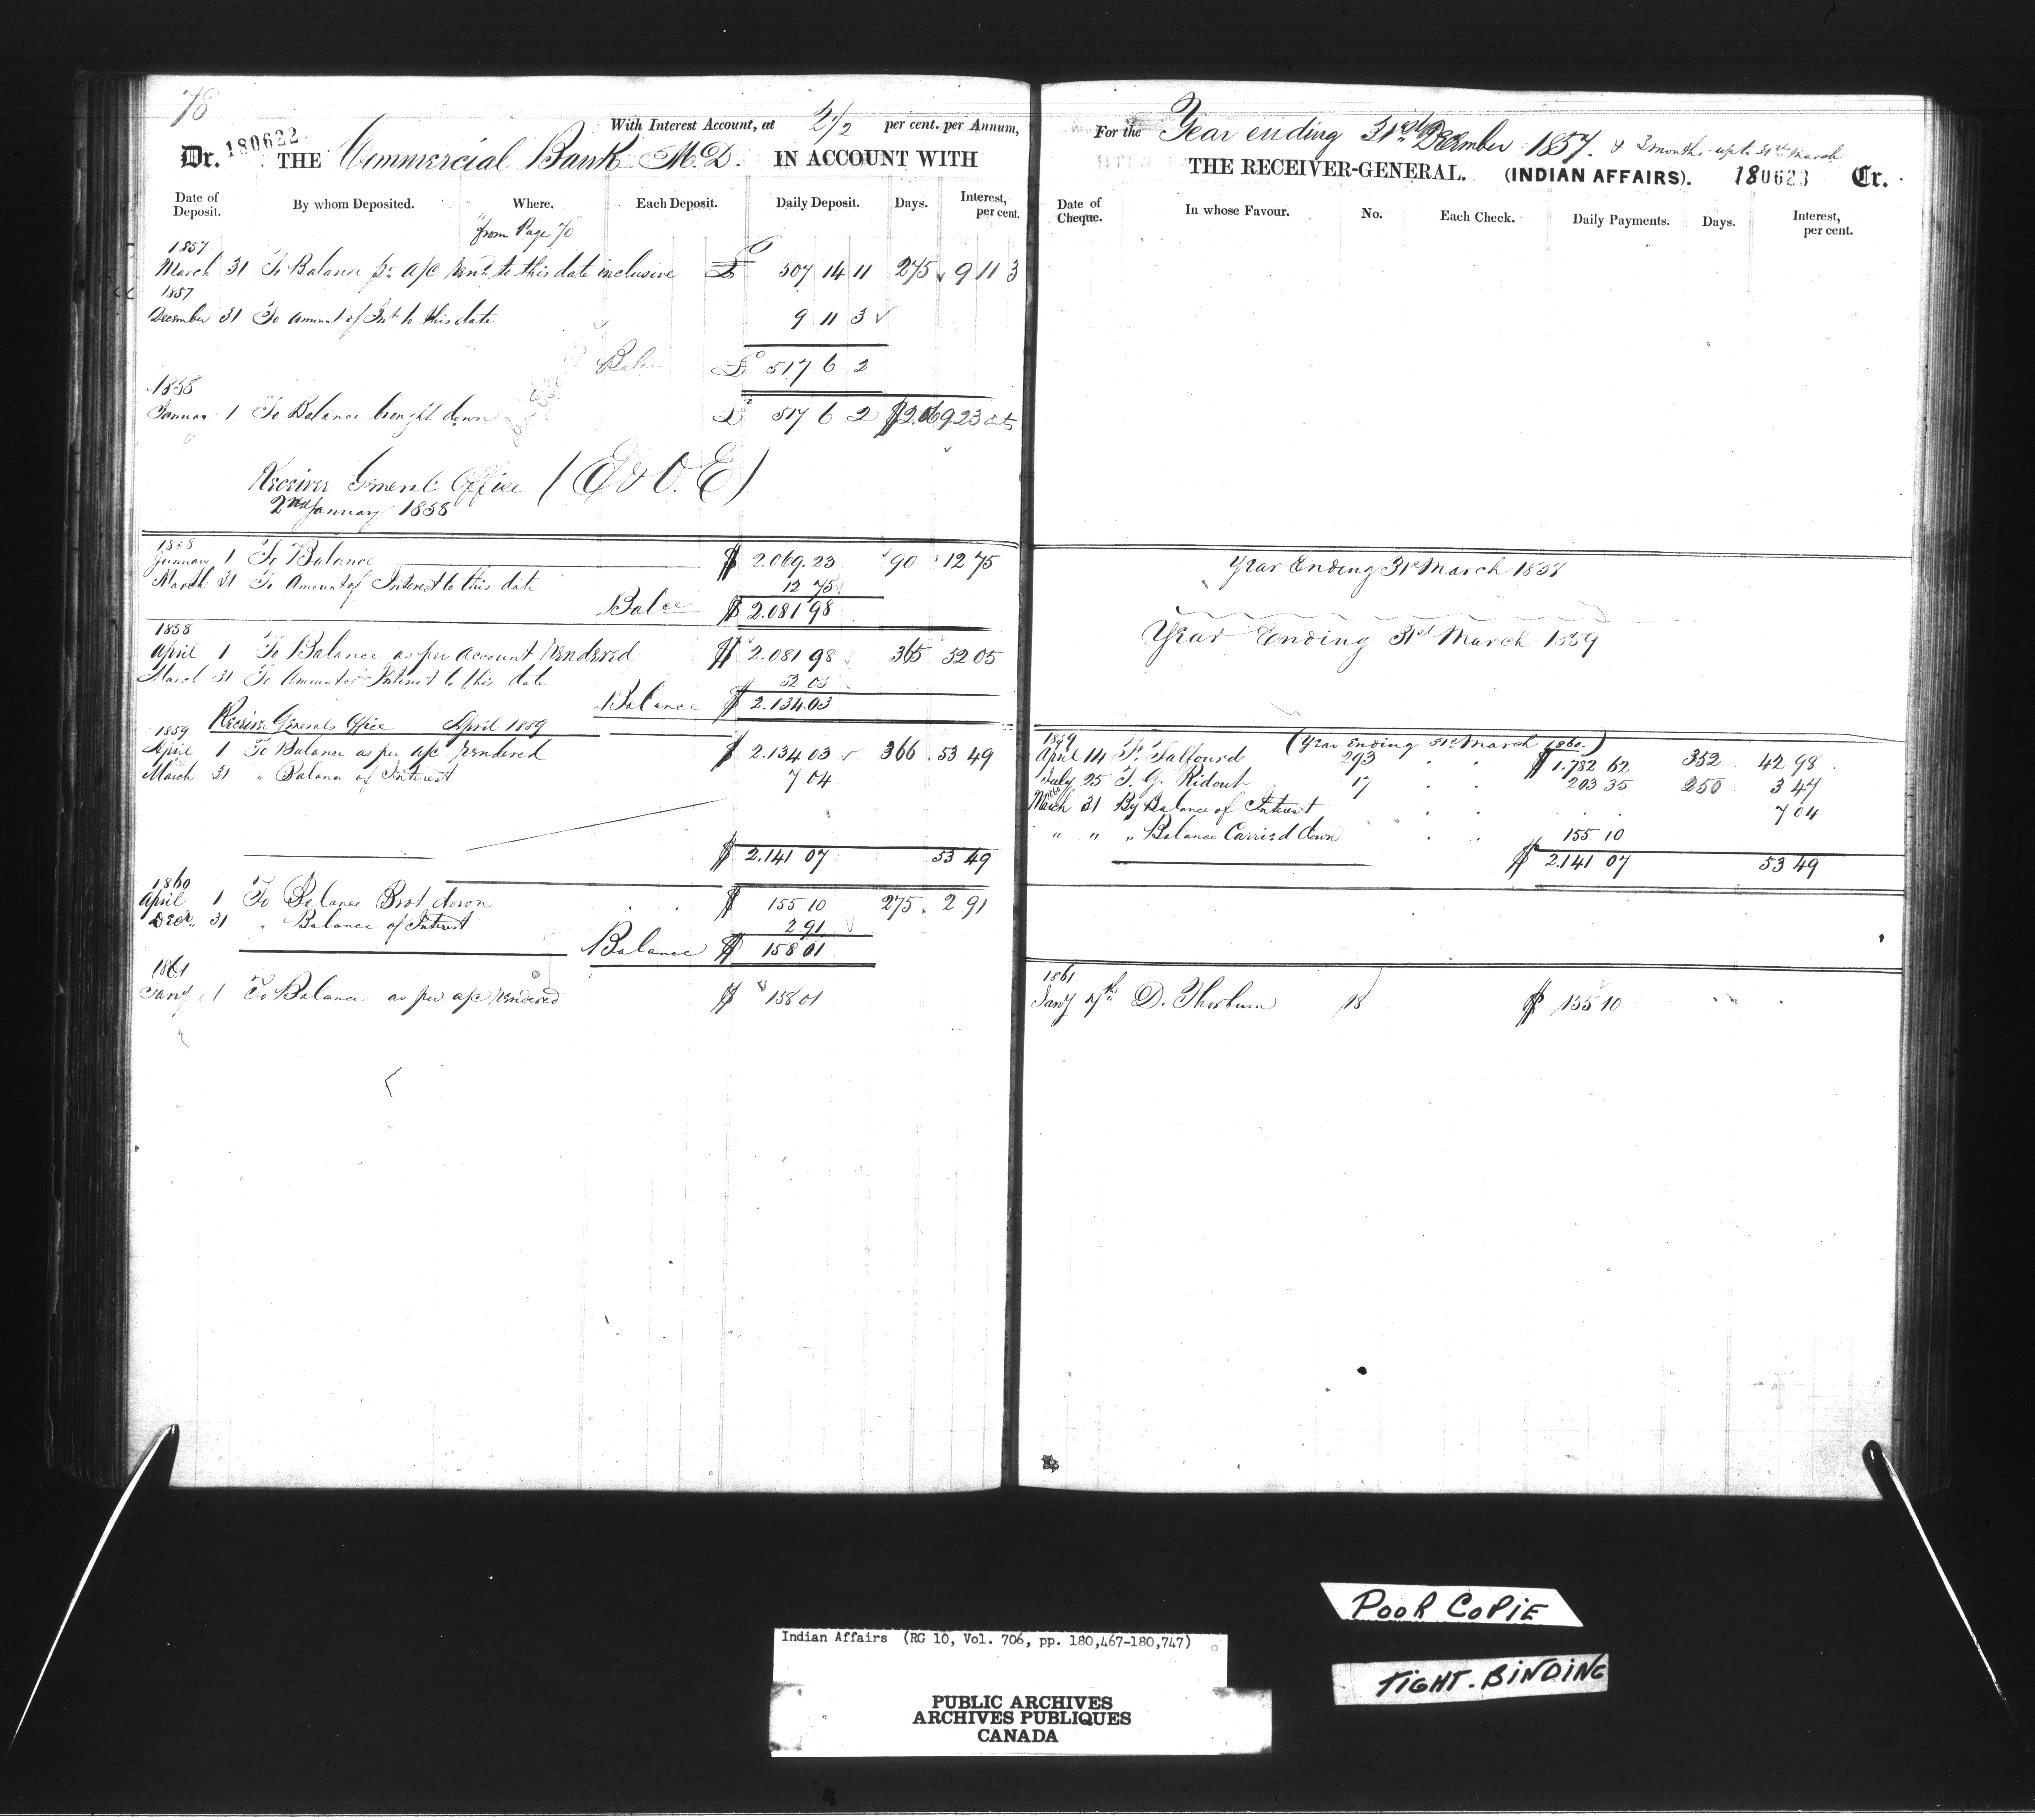 78
180622
With Interest Account, at 2 1/2 per cent. per Annum,
Dr. THE Commercial Bank M.D. IN ACCOUNT WITH
Date of Deposit. By whom Deposited. Where. Each Deposit. Daily Deposit. Days. Interest, per cent.
from Page 70
1857
March 31 To Balance pr a/c rend to this date inclusive £ 507 14 11 275 9 11 3
1857
December 31 To Amount of Int to this date 9 11 3
Balce £ 517 6 2
1858
January 1 To Balance brought down £ 517 6 2 $2.069.23 cnts
Receiver General Office (E & O. E)
2nd January 1858
1858
January 1 To Balance $ 2.069.23 90 12 75
March 31 To Amount of Interest to this date 12 75
Balce $ 2.081 98
1858
April 1 To Balance as per Account rendered $ 2.081 98 365 52 05
March 31 To Amount of Interest to this date 52 05
Balance $ 2.134.03
Receiver Generals Office April 1859
1859
April 1 To Balance as per a/c rendered $ 2.134 03 366 53 49
March 31 " Balance of Interest 7 04
$ 2.141 07 53 49
1860
April 1 To Balance Brot down $ 155 10 275 2 91
Decr 31 " Balance of Interest 2 91
Balance $ 158 01
1861
Jany 1 To Balance as per a/c rendered $ 158 01
For the Year ending 31st December 1857. & 3 months up to 31st March
THE RECEIVER-GENERAL. (INDIAN AFFAIRS). 180623 Cr.
Date of Cheque. In whose Favour. No. Each Check. Daily Payments. Days. Interest, per cent.
Year Ending 31st March 1858
Year Ending 31st March 1859
1859 (Year Ending 31st March 1860.)
April 14 F. Talfourd 293 $ 1.782 62 352 42 98
July 25 T. G. Ridout 17 203 35 250 3 47
1860
March 31 By Balance of Interest 7 04
" " " Balance Carried down 155 10
$ 2.141 07 53 49
1861
Jany 7th D. Thorburn 18 $ 155 10
POOR COPIE
TIGHT. BINDING
Indian Affairs (RG 10, Vol. 706, pp. 180,467-180,747)
PUBLIC ARCHIVES
ARCHIVES PUBLIQUES
CANADA